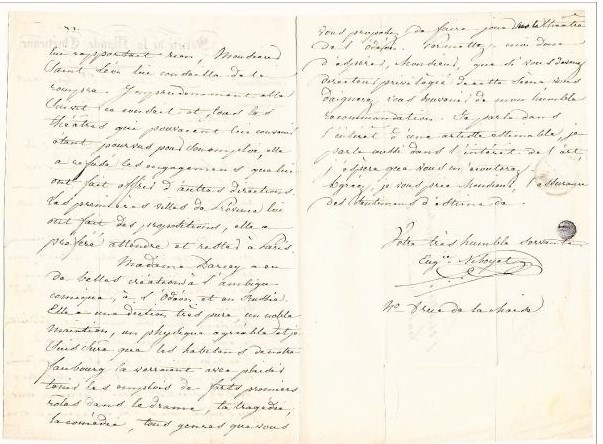 lui rapportant rien, Monsieur
Saint, Lévi lui conseilla de le
rompre. Imprudemment elle
suivit ce conseil et, tous les
théâtres que pouvaient lui convenir
étant pourvus pour son emploi, elle
a refusé les engagemens que lui
ont fait offrir d'autres directions.
Les premières villes de Province lui
ont fait des propositions, elle a
préféré attendre et rester à Paris.
Madame Darcey a eu
de belles créations à l'ambigu-
comique, à l'Odéon et en Russie.
Elle a une diction très pure, un noble
maintien, un physique agréable et je
suis sûre que les habitans de notre
faubourg la verraient avec plaisir
tenir les emplois de forts premiers
rôles dans le drame, la tragédie,
la comédie, tous genres que vous
vous proposez de faire jouer sur le théâtre
de l'odéon. Permettez-moi donc
d'espérer, Monsieur, que si vous devenez
directeur privilégié de cette scène vous
daignerez vous souvenir de mon humble
recommandation. Je parle dans
l'intérêt d'une artiste estimable, je
parle aussi dans l'intérêt de l'art,
j'espère que vous m'écouterez.
Agréez, je vous prie Monsieur, l'assurance
des sentimens d'estime de
Votre très humble servante
Eug.ie Niboyet
rue de la